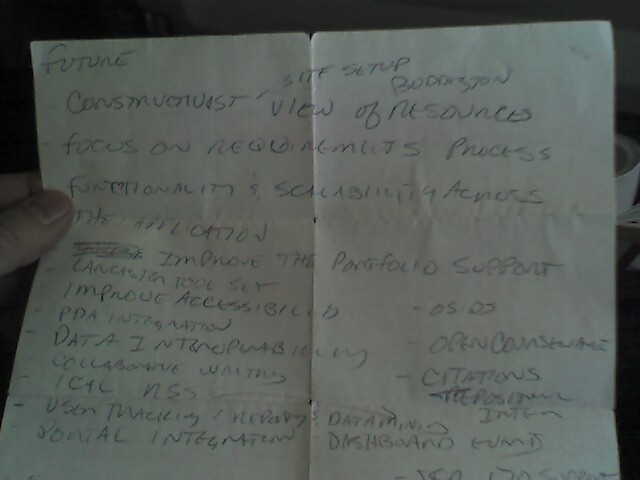 FUTURE
SITE SETUP
CONSTRUCTIVIST VIEW OF RESOURCES
- FOCUS ON REQUIREMENTS PROCESS
- FUNCTIONALITY & SCALABILITY ACROSS
THE APPLICATION
- IMPROVE THE PORTFOLIO SUPPORT
- LANCASTER TOOL SET
- IMPROVE ACCESSIBILITY
- PDA INTEGRATION
- DATA INTEROPERABILITY
- COLLABORATIVE WRITING
- ICAL RSS
- USER TRACKING / REPORTS & DATAMINING
- PORTAL INTEGRATION DASHBOARD
- OSIDS
- OPENCOURSEWARE
- CITATIONS
REPOSITORY
INTEG
- JSR 170 SUPPORT